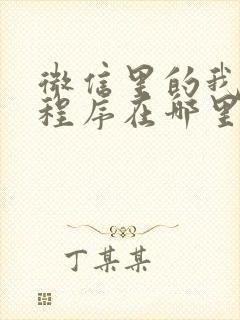 微信里的我
程序在哪里
丁某某